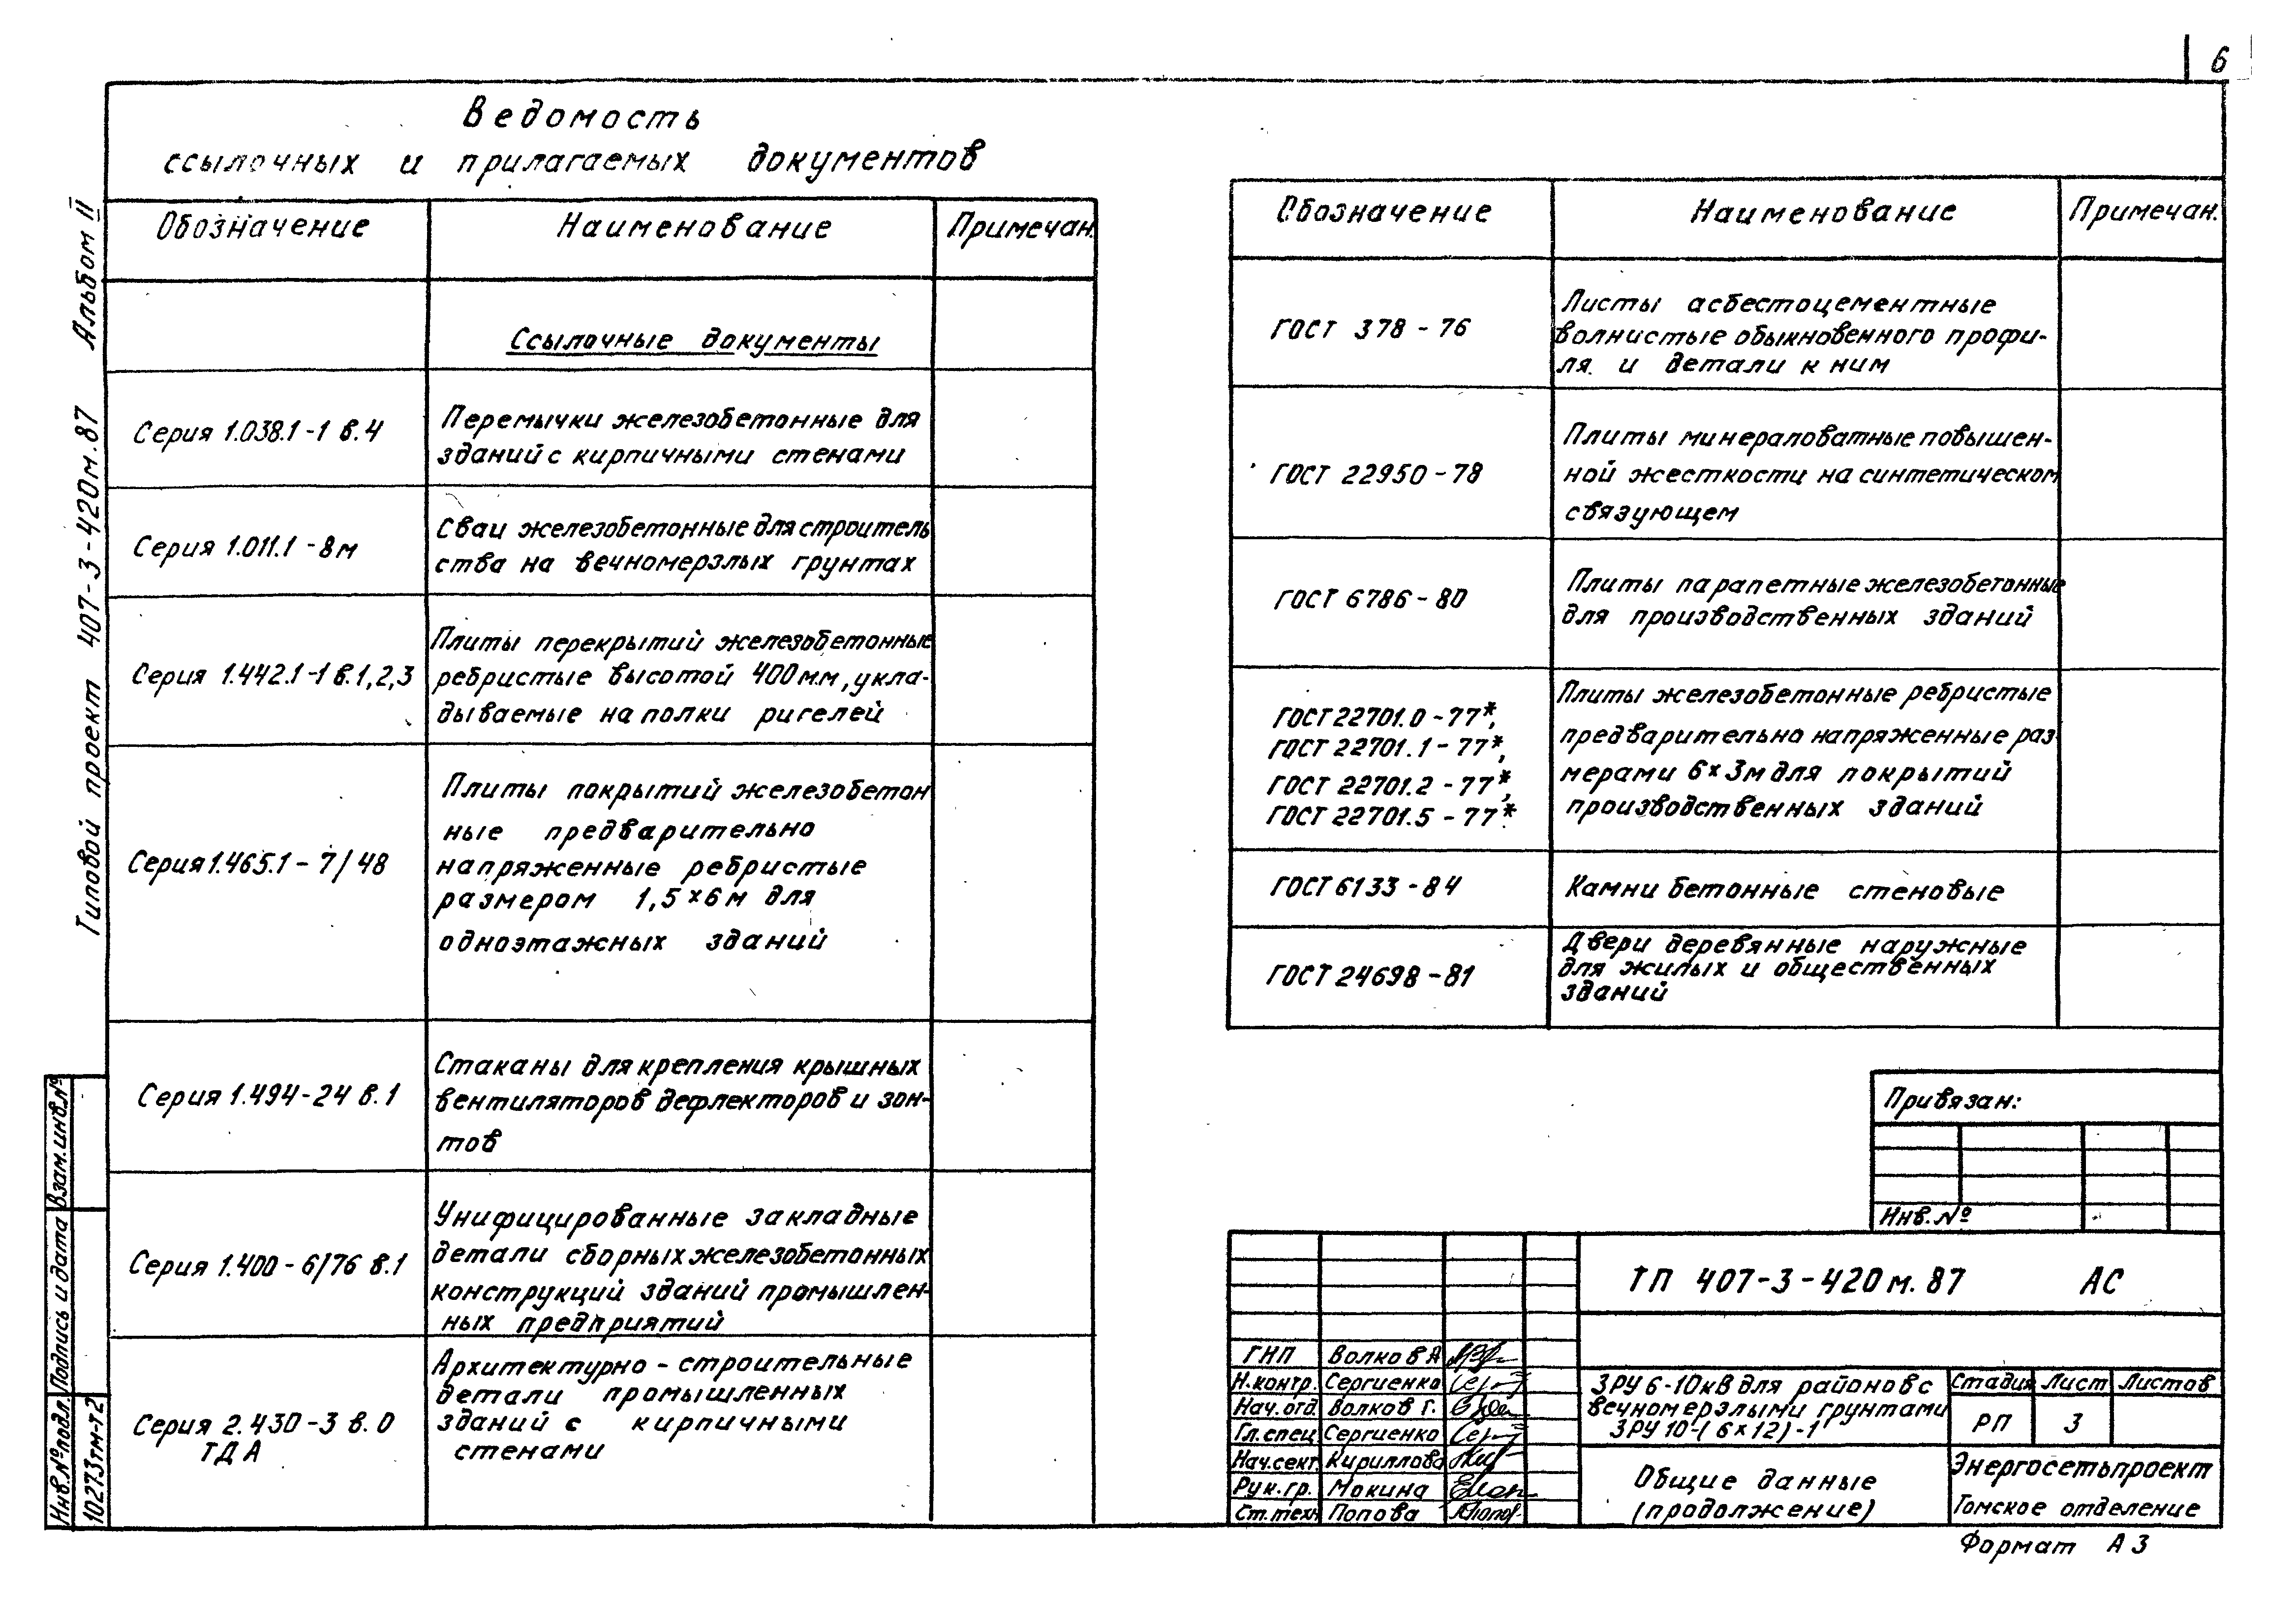 6
Ведомость
ссылочных и прилагаемых документов
Обозначение Наименование Примечан.
Ссылочные документы
Серия 1.038.1-1 в.4
Перемычки железобетонные для
зданий с кирпичными стенами
Серия 1.011.1-8м
Сваи железобетонные для строитель
ства на вечномерзлых грунтах
Серия 1.442.1-1 в.1,2,3
Плиты перекрытий железобетонные
ребристые высотой 400 мм, укла-
дываемые на полки ригелей
Серия 1.465.1-7/48
Плиты покрытий железобетон
ные предварительно
напряженные ребристые
размером 1,5×6м для
одноэтажных зданий
Серия 1.494-24 в.1
Стаканы для крепления крышных
вентиляторов дефлекторов и зон-
тов
Серия 1.400-6/76 в.1
Унифицированные закладные
детали сборных железобетонных
конструкций зданий промышлен-
ных предприятий
Серия 2.430-3 в.0
ТДА
Архитектурно-строительные
детали промышленных
зданий с кирпичными
стенами
Обозначение Наименование Примечан.
ГОСТ 378-76
Листы асбестоцементные
волнистые обыкновенного профи-
ля и детали к ним
ГОСТ 22950-78
Плиты минераловатные повышен-
ной жесткости на синтетическом
связующем
ГОСТ 6786-80
Плиты парапетные железобетонные
для производственных зданий
ГОСТ 22701.0-77*,
ГОСТ 22701.1-77*,
ГОСТ 22701.2-77*,
ГОСТ 22701.5-77*
Плиты железобетонные ребристые
предварительно напряженные раз
мерами 6×3м для покрытий
производственных зданий
ГОСТ 6133-84
Камни бетонные стеновые
ГОСТ 24698-81
Двери деревянные наружные
для жилых и общественных
зданий
Привязан:
Инв.№
ТП 407-3-420м.87 АС
ГИП Волков А
Н.контр. Сергиенко
Нач.отд. Волков Г.
Гл.спец Сергиенко
Нач.сект. Кириллова
Рук.гр. Мокина
Ст.техн Попова
ЗРУ 6-10кВ для районов с
вечномерзлыми грунтами
ЗРУ 10-(6×12)-1
Стадия Лист Листов
РП 3
Общие данные
(продолжение)
Энергосетьпроект
Томское отделение
Формат А3
Типовой проект 407-3-420м.87 Альбом II
Взам.инв.№
Подпись и дата
Инв.№ подл.
10273тм-т2